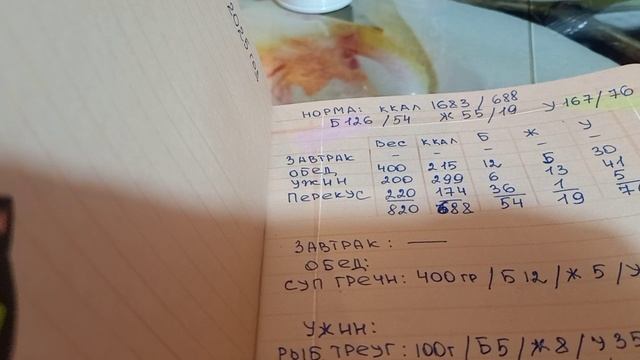 2025 год
НОРМА: ККАЛ 1683 / 688
Б 126 / 54 Ж 55 / 19 У 167 / 76
ВЕС ККАЛ Б Ж У
ЗАВТРАК - - - - -
ОБЕД 400 215 12 5 30
УЖИН 200 299 6 13 41
ПЕРЕКУС 220 174 36 1 5
820 688 54 19
ЗАВТРАК: —
ОБЕД:
СУП ГРЕЧН: 400 ГР / Б 12 / Ж 5 / У
УЖИН:
РЫБ ТРЕУГ: 100 Г / Б 5 / Ж 8 / У 35